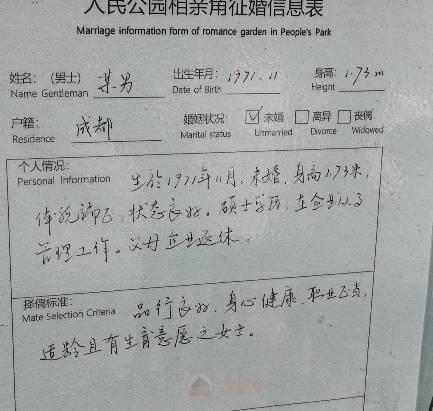 人民公园相亲角征婚信息表
Marriage information form of romance garden in People's Park
姓名：（男士） 某男 出生年月： 1971.11 身高： 1.73m
Name Gentleman Date of Birth Height
户籍： 成都 婚姻状况： ☑ 未婚 □ 离异 □ 丧偶
Residence Marital status Unmarried Divorce Widowed
个人情况：
Personal Information 生於1971年11月，未婚，身高1.73米，
体貌端正，状态良好。硕士学历，在企业从事
管理工作。父母企业退休。
择偶标准：
Mate Selection Criteria 品行良好，身心健康，职业正当，
适龄且有生育意愿之女士。